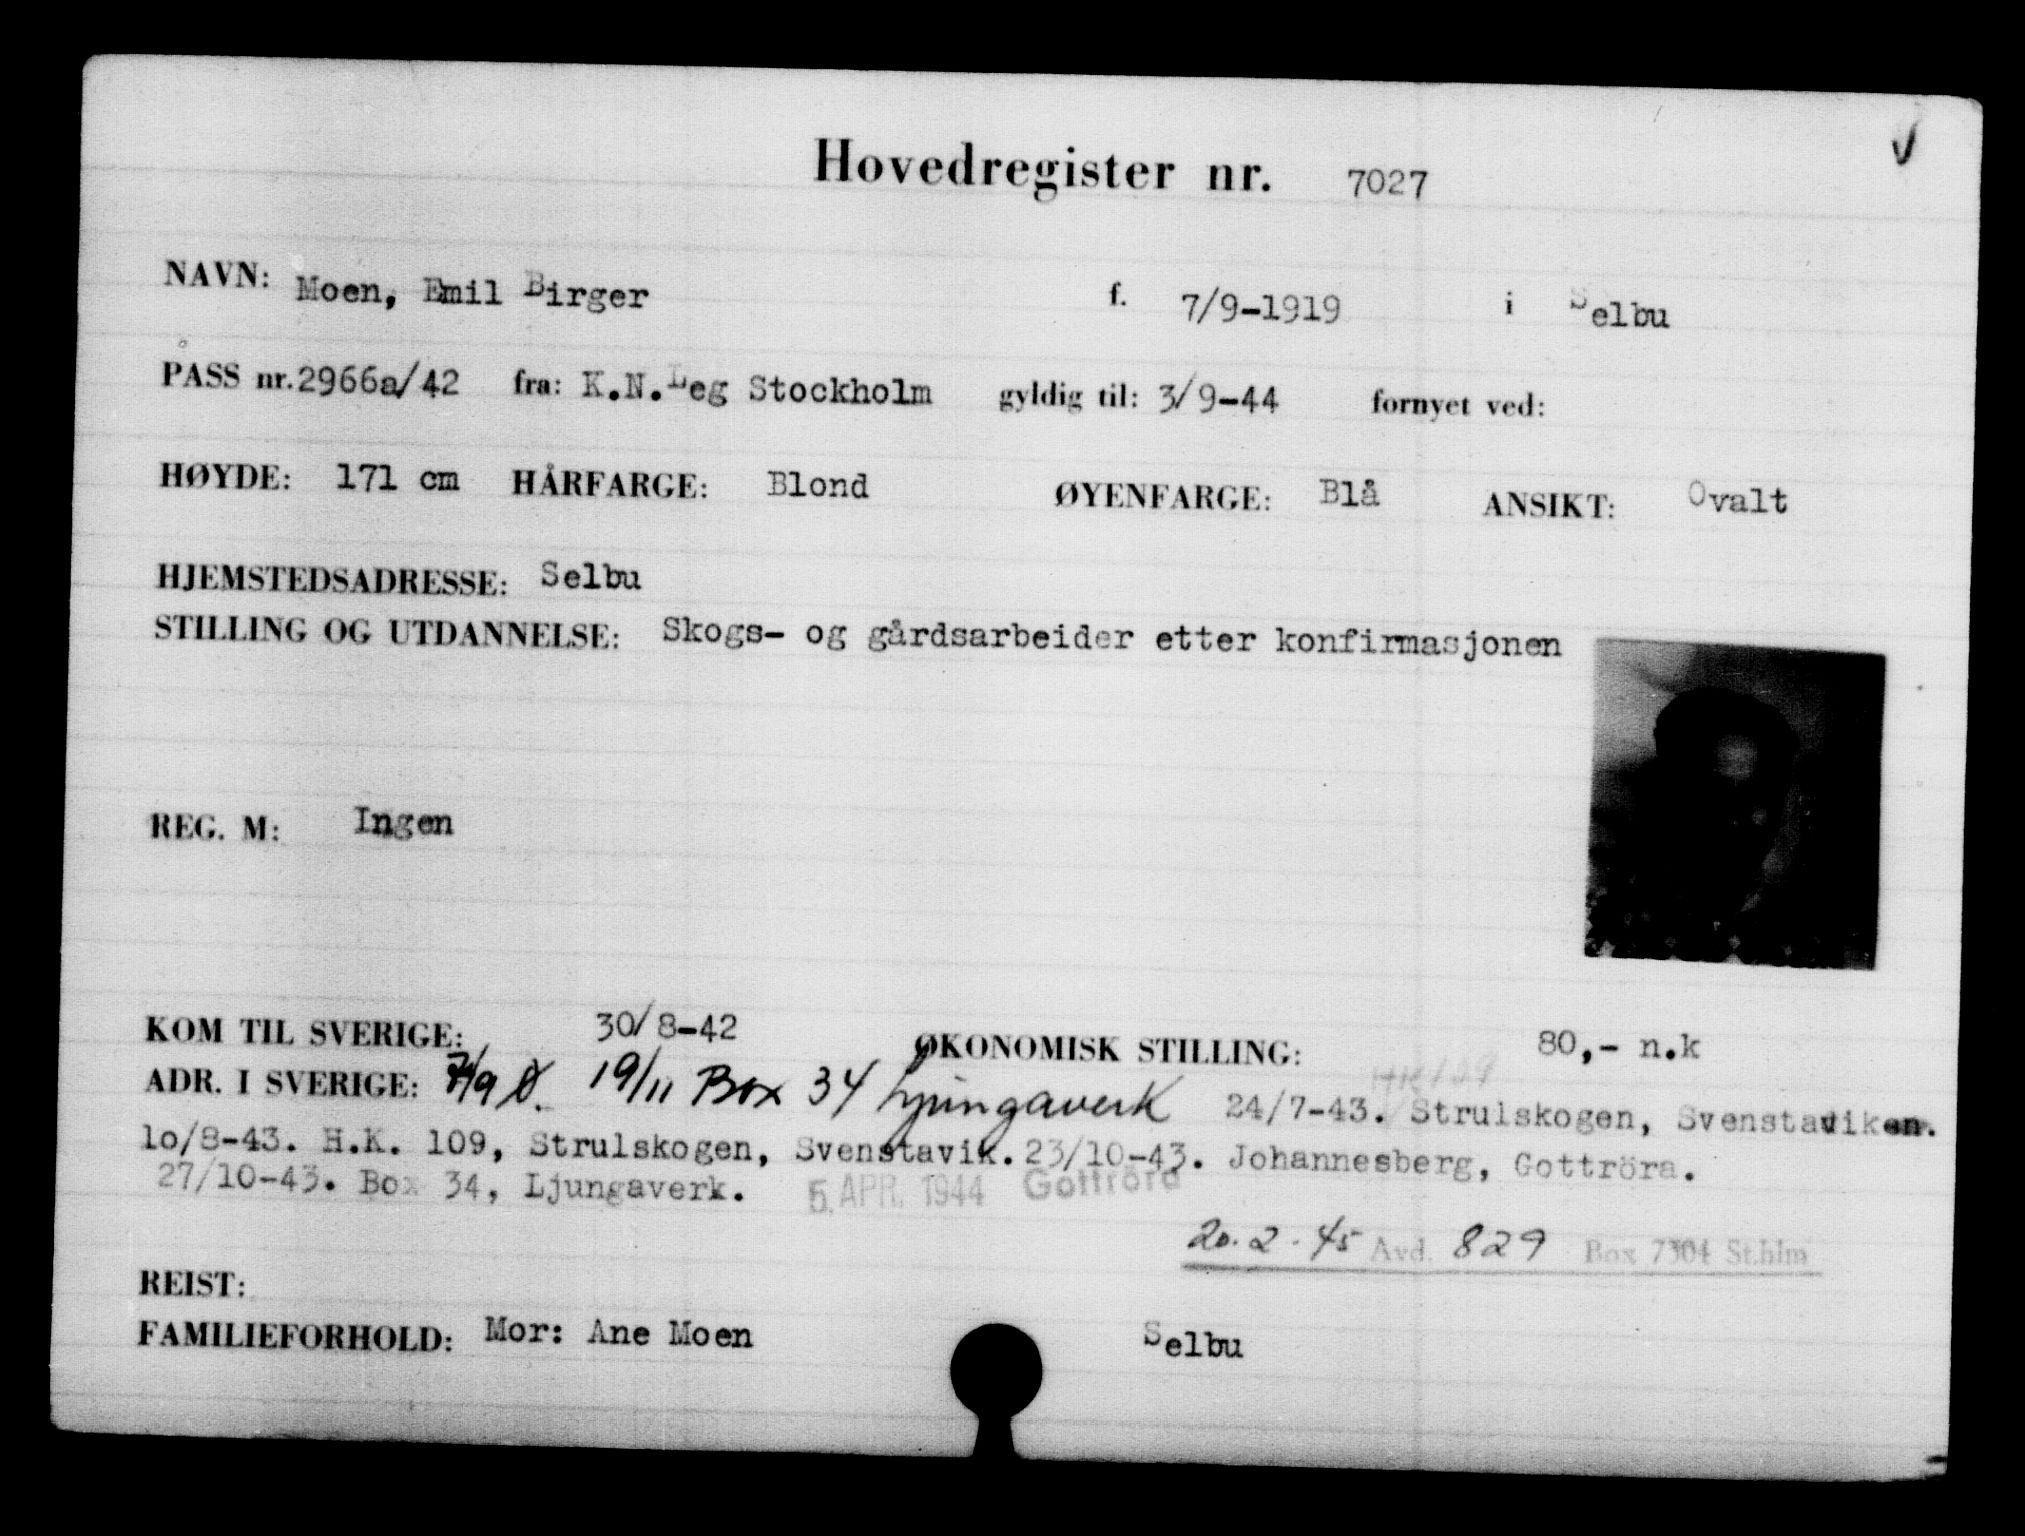 Hovedregister nr. 7027
NAVN: Moen, Emil Birger f. 7/9-1919 i Selbu
PASS nr. 2966a/42 fra: K.N.Leg Stockholm gyldig til: 3/9-44 fornyet ved:
HØYDE: 171 cm HÅRFARGE: Blond ØYENFARGE: Blå ANSIKT: Ovalt
HJEMSTEDSADRESSE: Selbu
STILLING OG UTDANNELSE: Skogs- og gårdsarbeider etter konfirmasjonen
REG. M: Ingen
KOM TIL SVERIGE: 30/8-42 ØKONOMISK STILLING: 80,- n.k
ADR. I SVERIGE: 19/11 Box 34 Ljungaverk 24/7-43. Strulskogen, Svenstaviken.
10/8-43. H.K. 109, Strulskogen, Svenstavik. 23/10-43. Johannesberg, Gottröra.
27/10-43. Box 34, Ljungaverk. 5. APR. 1944 Gottröra
20.2.45 Avd. 829 Box 7304 St.hlm
REIST:
FAMILIEFORHOLD: Mor: Ane Moen Selbu